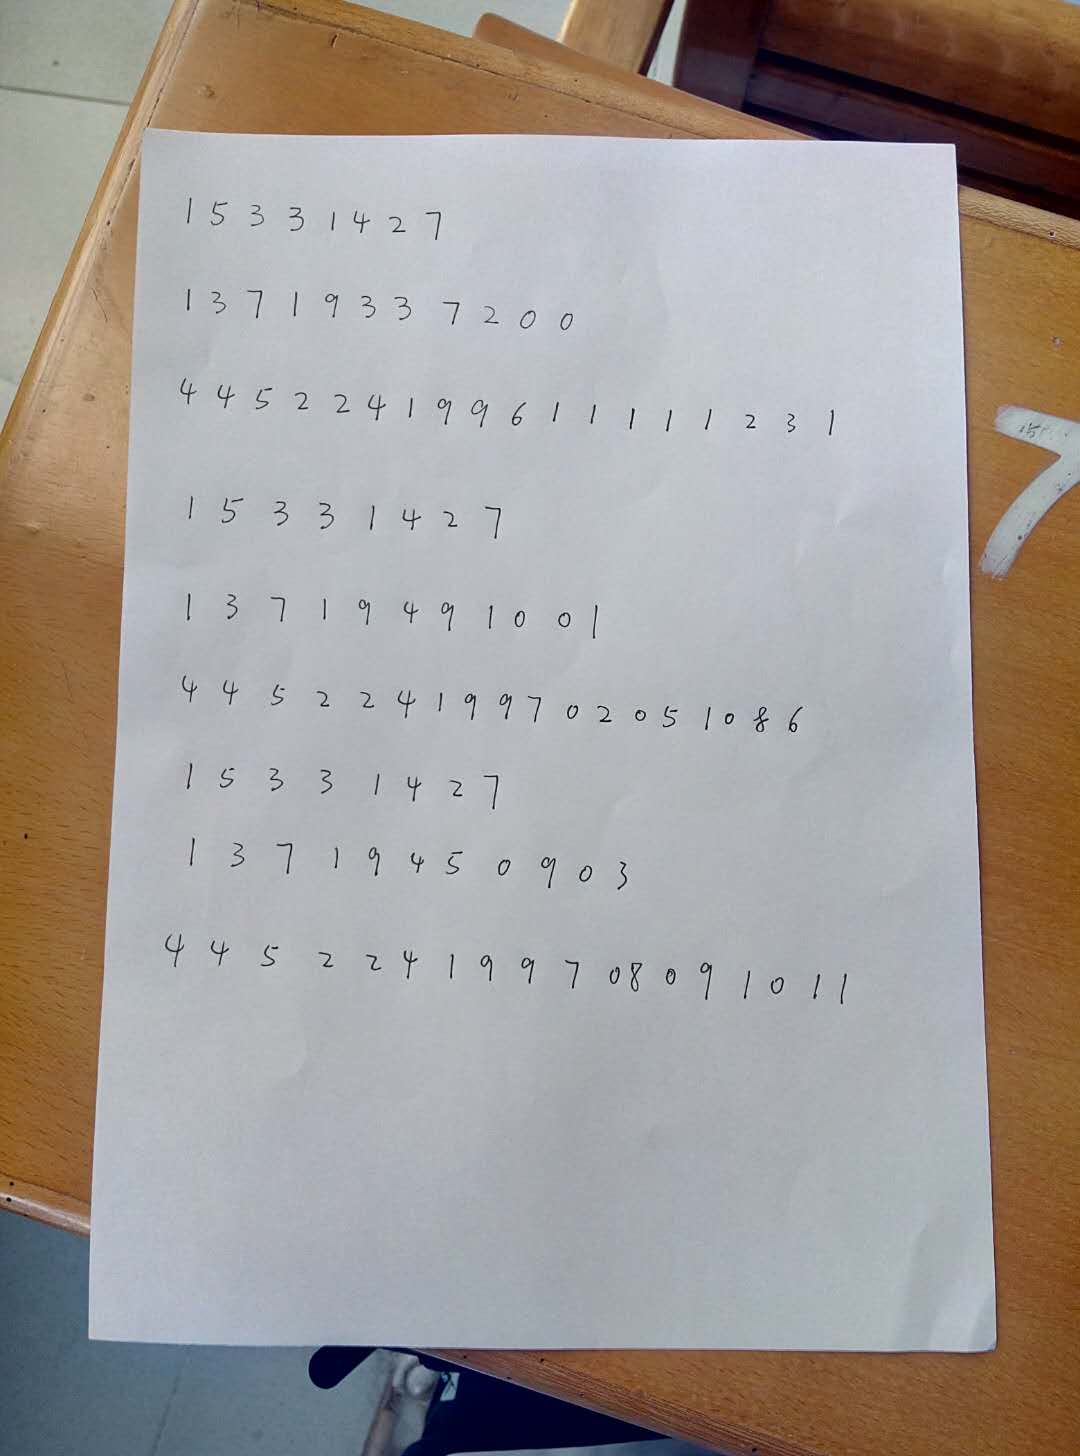 1 5 3 3 1 4 2 7
1 3 7 1 9 3 3 7 2 0 0
4 4 5 2 2 4 1 9 9 6 1 1 1 1 1 2 3 1
1 5 3 3 1 4 2 7
1 3 7 1 9 4 9 1 0 0 1
4 4 5 2 2 4 1 9 9 7 0 2 0 5 1 0 8 6
1 5 3 3 1 4 2 7
1 3 7 1 9 4 5 0 9 0 3
4 4 5 2 2 4 1 9 9 7 0 8 0 9 1 0 1 1
7